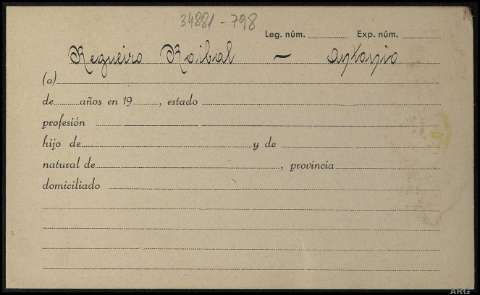 34881-798
Leg. núm. Exp. núm.
Regueiro Roibal — Antonio
(a)
de años en 19 , estado
profesión
hijo de y de
natural de , provincia
domiciliado